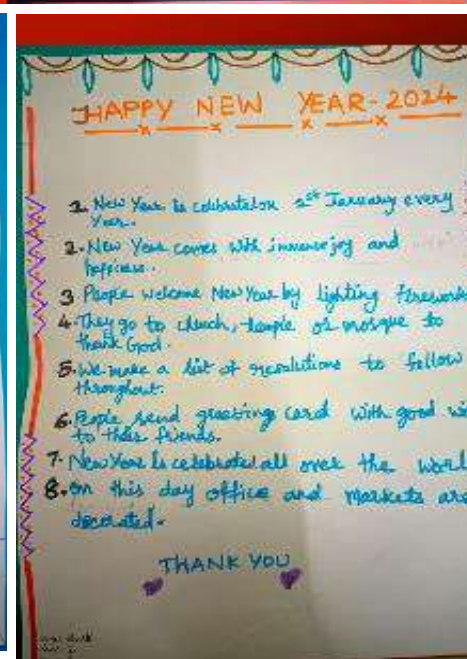 HAPPY NEW YEAR-2024
1. New Year is celebrated on 1st January every
Year.
2. New Year comes with immense joy and
happiness.
3 People welcome New Year by lighting firework
4. They go to church, temple or mosque to
thank God.
5. We make a list of resolutions to follow
throughout.
6. People send greeting card with good wi
to their friends.
7. New Year is celebrated all over the worl
8. on this day office and markets are
decorated.
THANK YOU